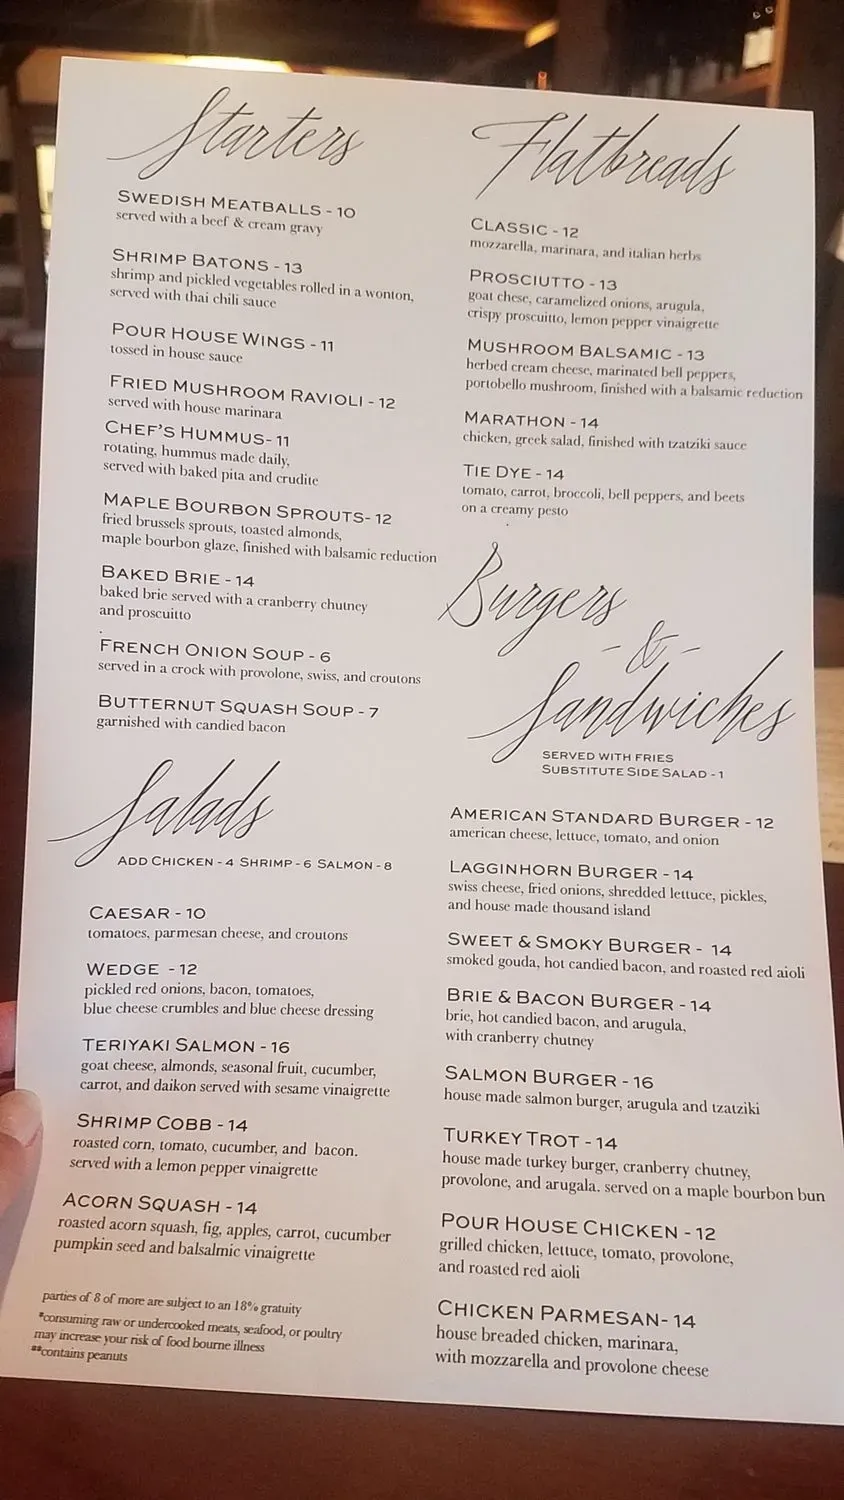 Starters
SWEDISH MEATBALLS - 10
served with a beef & cream gravy
SHRIMP BATONS - 13
shrimp and pickled vegetables rolled in a wonton,
served with thai chili sauce
POUR HOUSE WINGS - 11
tossed in house sauce
FRIED MUSHROOM RAVIOLI - 12
served with house marinara
CHEF'S HUMMUS- 11
rotating, hummus made daily,
served with baked pita and crudite
MAPLE BOURBON SPROUTS- 12
fried brussels sprouts, toasted almonds,
maple bourbon glaze, finished with balsamic reduction
BAKED BRIE - 14
baked brie served with a cranberry chutney
and proscuitto
FRENCH ONION SOUP - 6
served in a crock with provolone, swiss, and croutons
BUTTERNUT SQUASH SOUP - 7
garnished with candied bacon
Salads
ADD CHICKEN - 4 SHRIMP - 6 SALMON - 8
CAESAR - 10
tomatoes, parmesan cheese, and croutons
WEDGE - 12
pickled red onions, bacon, tomatoes,
blue cheese crumbles and blue cheese dressing
TERIYAKI SALMON - 16
goat cheese, almonds, seasonal fruit, cucumber,
carrot, and daikon served with sesame vinaigrette
SHRIMP COBB - 14
roasted corn, tomato, cucumber, and bacon.
served with a lemon pepper vinaigrette
ACORN SQUASH - 14
roasted acorn squash, fig, apples, carrot, cucumber
pumpkin seed and balsalmic vinaigrette
parties of 8 of more are subject to an 18% gratuity
*consuming raw or undercooked meats, seafood, or poultry
may increase your risk of food bourne illness
**contains peanuts
Flatbreads
CLASSIC - 12
mozzarella, marinara, and italian herbs
PROSCIUTTO - 13
goat chese, caramelized onions, arugula,
crispy proscuitto, lemon pepper vinaigrette
MUSHROOM BALSAMIC - 13
herbed cream cheese, marinated bell peppers,
portobello mushroom, finished with a balsamic reduction
MARATHON - 14
chicken, greek salad, finished with tzatziki sauce
TIE DYE - 14
tomato, carrot, broccoli, bell peppers, and beets
on a creamy pesto
Burgers
- & -
Sandwiches
SERVED WITH FRIES
SUBSTITUTE SIDE SALAD - 1
AMERICAN STANDARD BURGER - 12
american cheese, lettuce, tomato, and onion
LAGGINHORN BURGER - 14
swiss cheese, fried onions, shredded lettuce, pickles,
and house made thousand island
SWEET & SMOKY BURGER - 14
smoked gouda, hot candied bacon, and roasted red aioli
BRIE & BACON BURGER - 14
brie, hot candied bacon, and arugula,
with cranberry chutney
SALMON BURGER - 16
house made salmon burger, arugula and tzatziki
TURKEY TROT - 14
house made turkey burger, cranberry chutney,
provolone, and arugala. served on a maple bourbon bun
POUR HOUSE CHICKEN - 12
grilled chicken, lettuce, tomato, provolone,
and roasted red aioli
CHICKEN PARMESAN- 14
house breaded chicken, marinara,
with mozzarella and provolone cheese